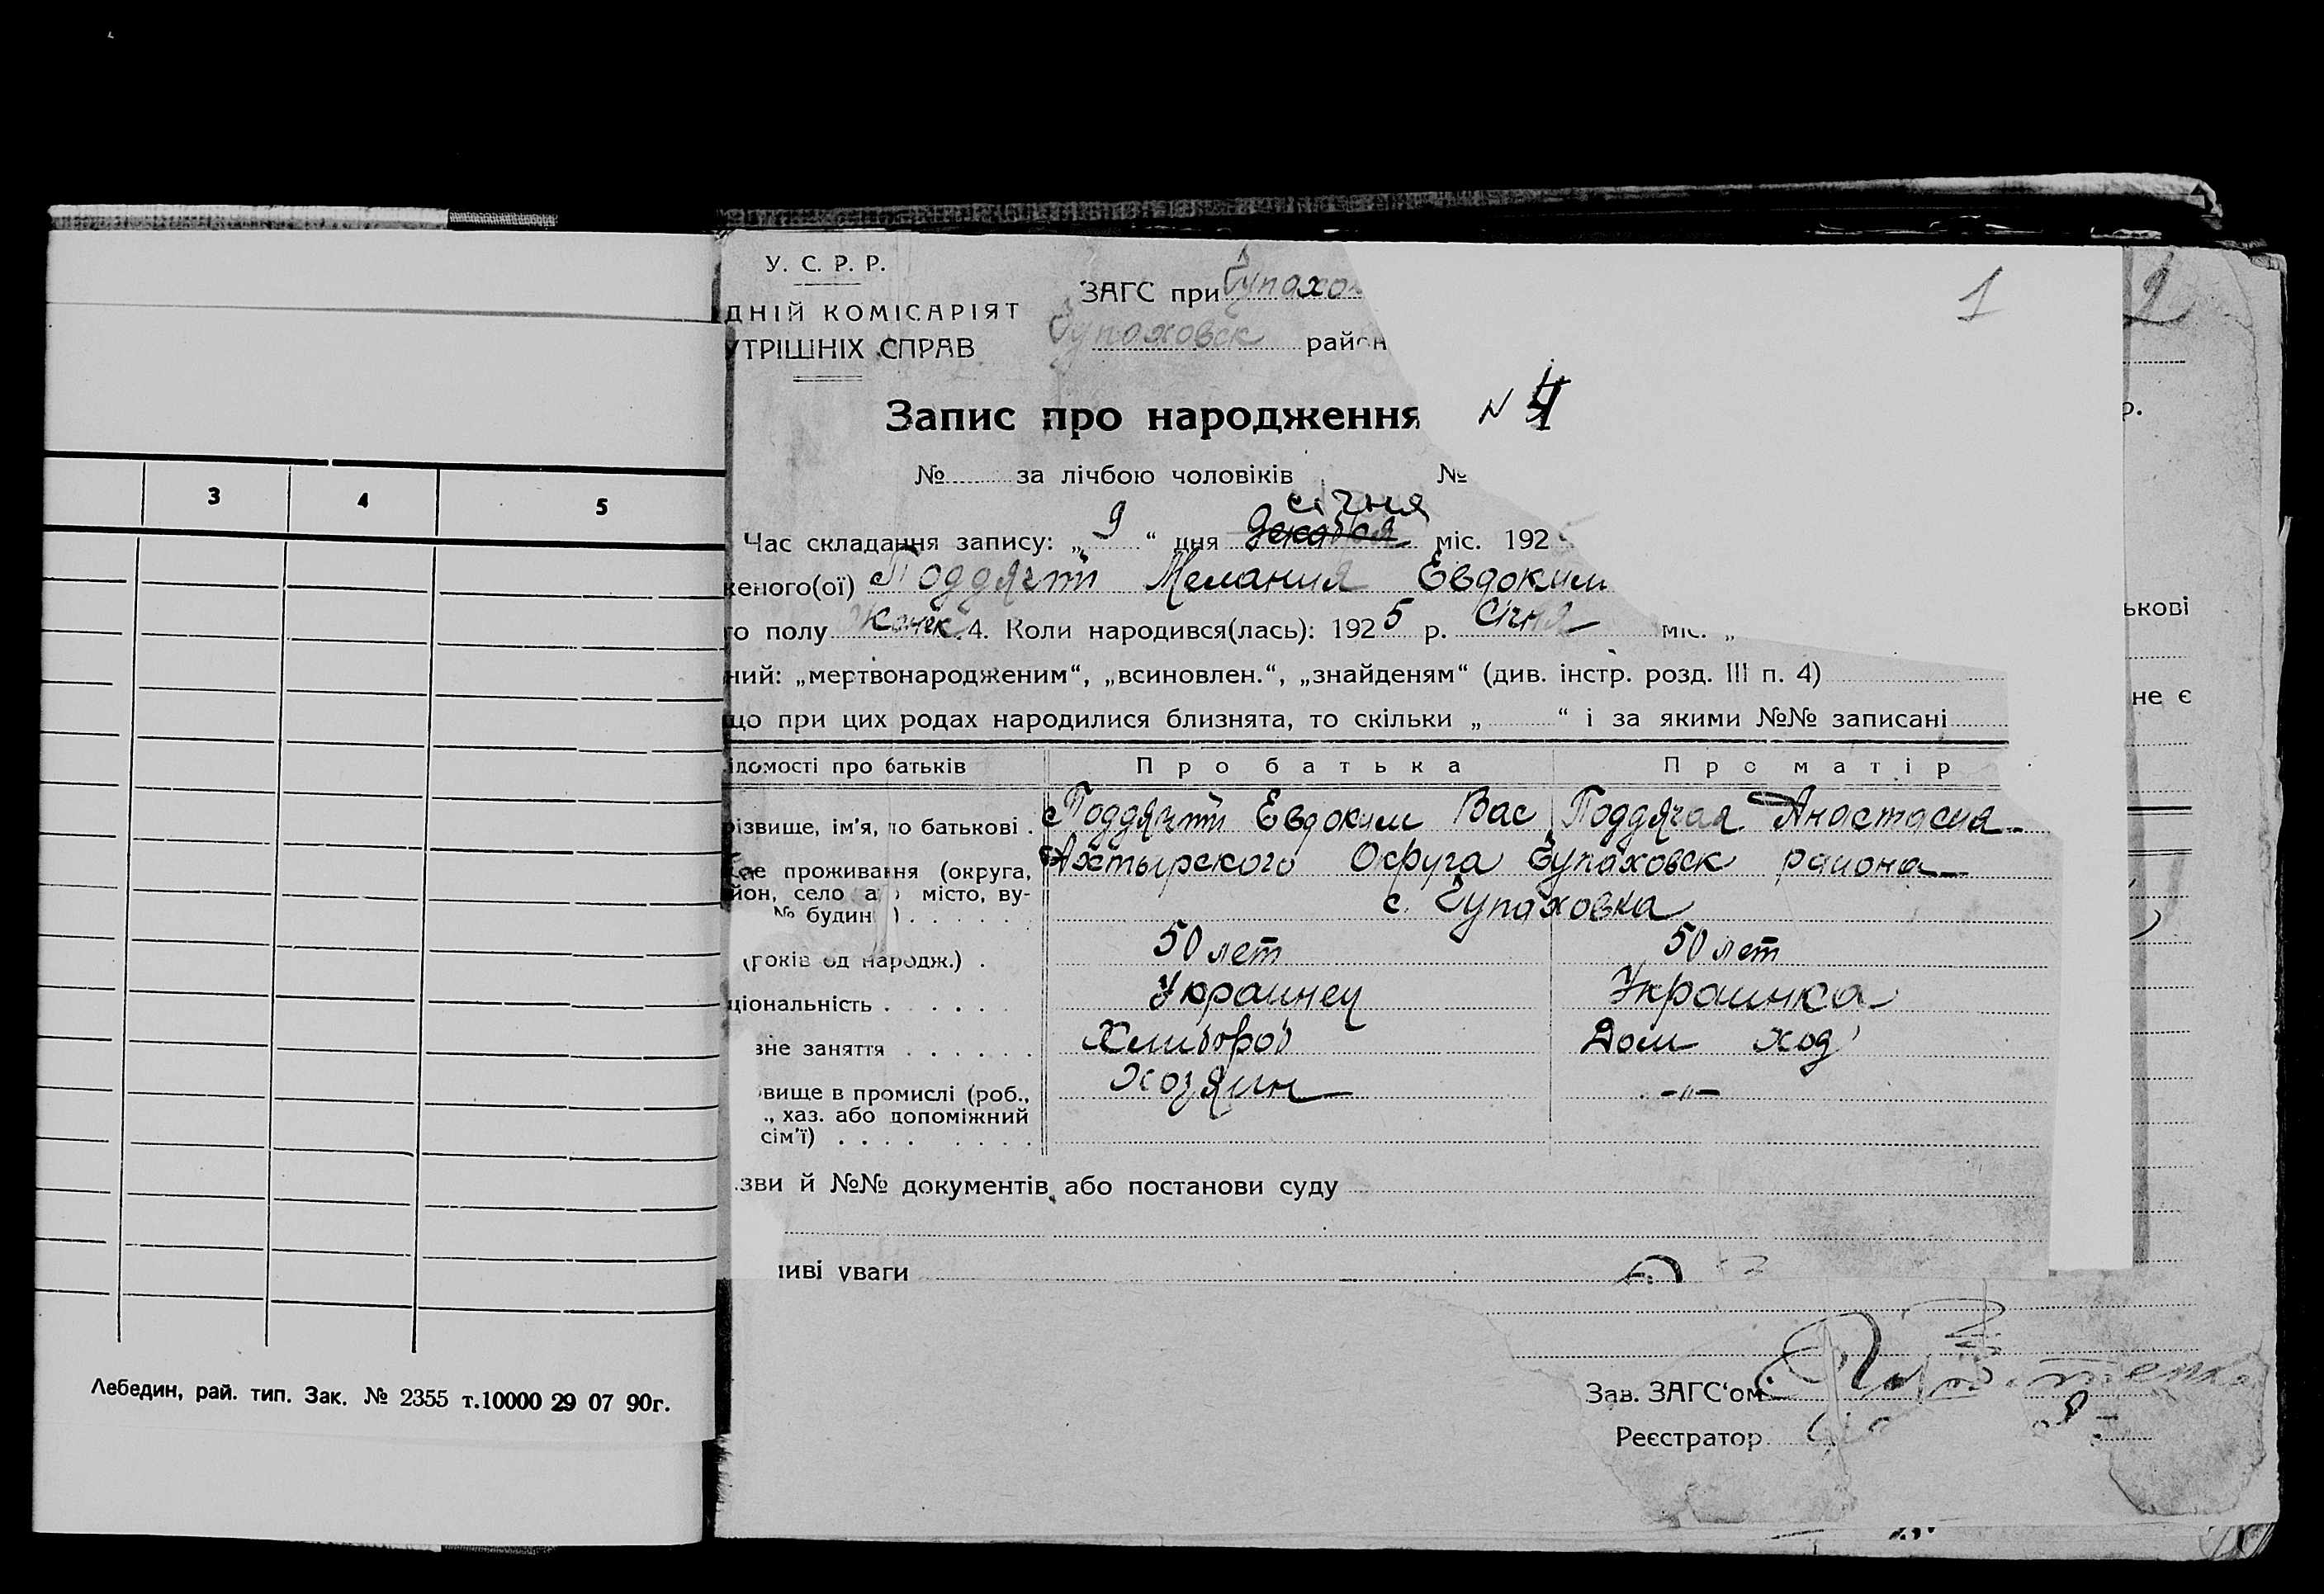 3 4 5
Лебедин, рай. тип. Зак. № 2355 т.10000 29 07 90г.
У. С. Р. Р.
ДНІЙ КОМІСАРІЯТ
УТРІШНІХ СПРАВ
ЗАГС при Чупахов
Чупаховск район
1
2
Запис про народження N 4
№ за лічбою чоловіків №
січня
Час складання запису: „ 9 “ дня декабря міс. 192
р.
женого(ої) Поддячий Мелания Евдоким
ькові
го полу женск 4. Коли народився(лась): 1925 р. Січня міс. „
ний: „мертвонародженим“, „всиновлен.“, „знайденям“ (див. інстр. розд. III п. 4)
не є
що при цих родах народилися близнята, то скільки „ “ і за якими №№ записані
ідомості про батьків Про батька Про матір
різвище, ім'я, по батькові . Поддячий Евдоким Вас Поддячая Анастасия
проживання (округа, Ахтырского Округа Чупаховск района
йон, село або місто, ву-
№ будин ) . с. Чупаховка
(років од народж.) . 50 лет 50 лет
ціональність . Украинец Украинка
вне заняття . Хлибороб Дом ход
вище в промислі (роб., Хозяин -„-
., хаз. або допоміжний
сім'ї) .
зви й №№ документів або постанови суду
ливі уваги
Зав. ЗАГС'ом
Реєстратор